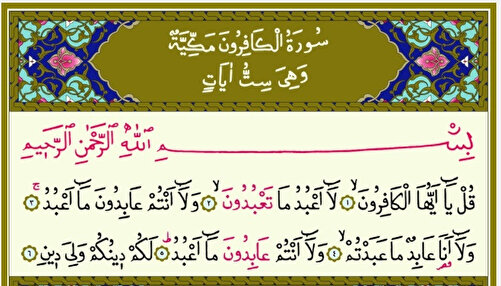 سُورَةُ الْكَافِرُونَ مَكِّيَّةٌ
وَهِيَ سِتُّ اٰيَاتٍ
بِسْمِ اللّٰهِ الرَّحْمٰنِ الرَّحٖيمِ
قُلْ يَٓا اَيُّهَا الْكَافِرُونَۙ ﴿١﴾ لَٓا اَعْبُدُ مَا تَعْبُدُونَۙ ﴿٢﴾ وَلَٓا اَنْتُمْ عَابِدُونَ مَٓا اَعْبُدُۚ ﴿٣﴾
وَلَٓا اَنَا۬ عَابِدٌ مَا عَبَدْتُمْۙ ﴿٤﴾ وَلَٓا اَنْتُمْ عَابِدُونَ مَٓا اَعْبُدُۜ ﴿٥﴾ لَكُمْ دٖينُكُمْ وَلِيَ دٖينِ ﴿٦﴾